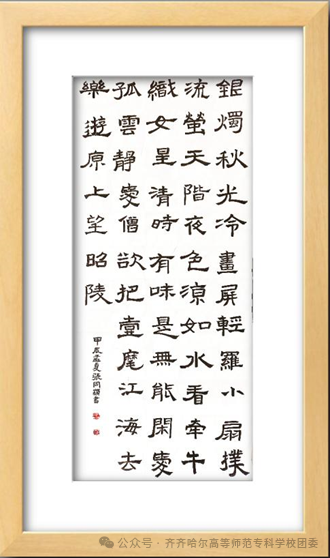 銀燭秋光冷畫屏輕羅小扇撲
流螢天階夜色涼如水看牽牛
織女星清時有味是無能閑愛
孤雲靜愛僧欲把壹麾江海去
樂遊原上望昭陵
甲辰孟夏張同書
公众号 · 齐齐哈尔高等师范专科学校团委